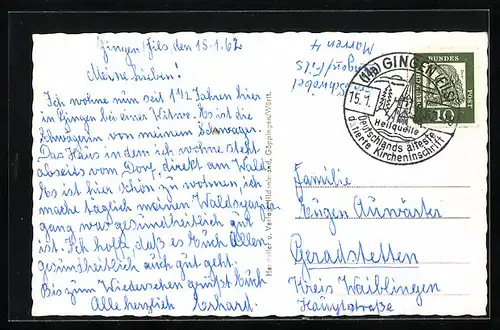 Gingen/Fils, den 15.1.62
Meine Lieben!
Ich wohne nun seit 1 1/2 Jahren hier
in Gingen bei einer Witwe. Es ist die
Schwägerin von meinem Schwager.
Das Haus in dem ich wohne steht
abseits vom Dorf, direkt am Wald.
Es ist hier schön zu wohnen, ich
mache täglich meinen Waldspazier
gang was gesundheitlich gut
ist. Ich hoffe daß es Euch Allen
gesundheitlich auch gut geht.
Bis zum Wiedersehen grüßt Euch
Alle herzlich Erhard.
Hersteller u. Verlag Hildenbrand, Göppingen/Württ.
Schwöbel
Gingen/Fils
Marren 4
GINGEN (FILS)
15.1.
Heilquelle
Deutschlands älteste
datierte Kircheninschrift
DEUTSCHE BUNDESPOST
10
Familie
Eugen Auwärter
Geradstetten
Kreis Waiblingen
Hauptstraße